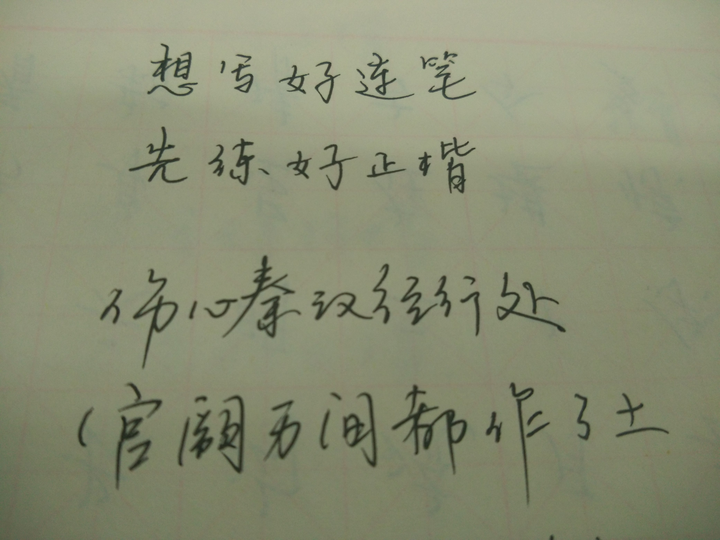 想写好连笔
先练好正楷
伤心秦汉经行处
(宫阙万间都作了土